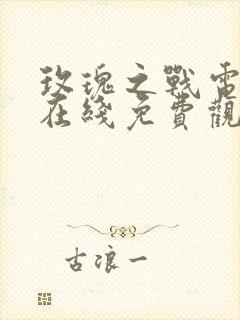 玫瑰之戰電
在綫免費觀
古浪一